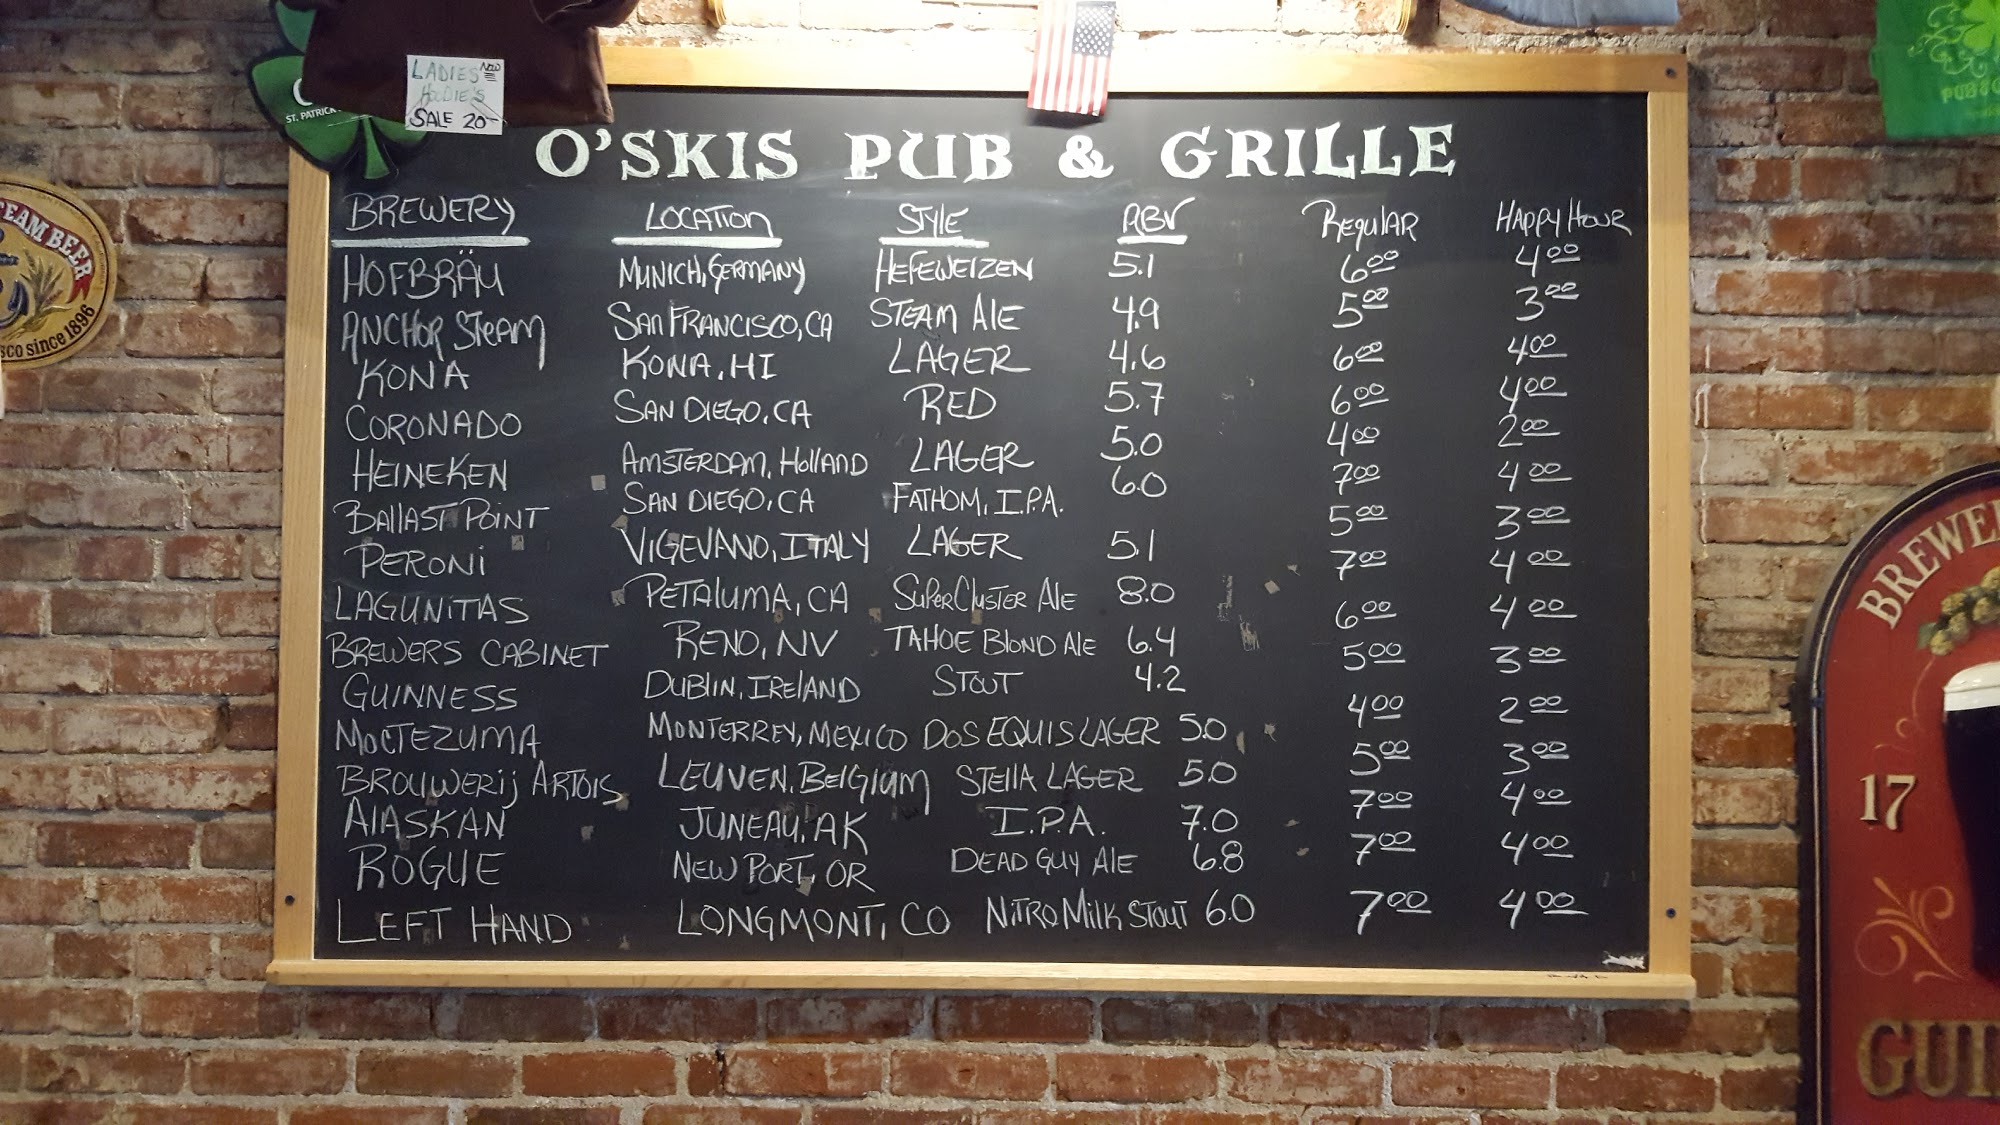 LADIES' NEW
HOODIE'S
SALE 20
ST. PATRICK
TEAM BEER
SCO since 1896
O'SKIS PUB & GRILLE
BREWERY LOCATION STYLE ABV REGULAR HAPPY HOUR
HOFBRÄU MUNICH, GERMANY HEFEWEIZEN 5.1 6.00 4.00
ANCHOR STEAM SAN FRANCISCO, CA STEAM ALE 4.9 5.00 3.00
KONA KONA, HI LAGER 4.6 6.00 4.00
CORONADO SAN DIEGO, CA RED 5.7 6.00 4.00
HEINEKEN AMSTERDAM, HOLLAND LAGER 5.0 4.00 2.00
BALLAST POINT SAN DIEGO, CA FATHOM, I.P.A. 6.0 7.00 4.00
PERONI VIGEVANO, ITALY LAGER 5.1 5.00 3.00
LAGUNITAS PETALUMA, CA SUPERCLUSTER ALE 8.0 7.00 4.00
BREWERS CABINET RENO, NV TAHOE BLOND ALE 6.4 6.00 4.00
GUINNESS DUBLIN, IRELAND STOUT 4.2 5.00 3.00
MOCTEZUMA MONTERREY, MEXICO DOS EQUIS LAGER 5.0 4.00 2.00
BROUWERIJ ARTOIS LEUVEN, BELGIUM STELLA LAGER 5.0 5.00 3.00
ALASKAN JUNEAU, AK I.P.A. 7.0 7.00 4.00
ROGUE NEW PORT, OR DEAD GUY ALE 6.8 7.00 4.00
LEFT HAND LONGMONT, CO NITRO MILK STOUT 6.0 7.00 4.00
BREWE
17
GUI